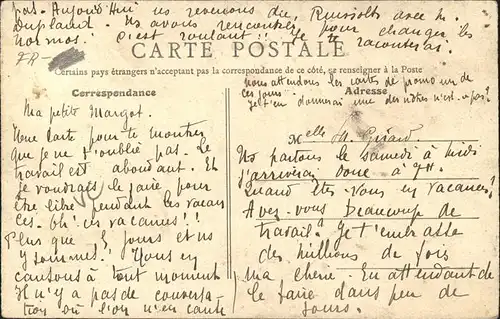 pas. Aujourd'hui ns revenons du Ruissolts avec M.
Dupland. Ns avons rencontré
normos! c'est roulant!! Je te pour changer les
raconterai.
CARTE POSTALE
Certains pays étrangers n'acceptant pas la correspondance de ce côté, se renseigner à la Poste
Nous attendons les cartes de promo un de
ces jours
Je t'en donnerai une des nôtres n'est-ce pas?
Correspondance
Adresse
Ma petite Margot.
Une carte pour te montrer
que je ne t'oublie pas. Le
travail est abondant. Et
je voudrais le faire pour
être libre pendant les vacan
ces. Oh! ces vacances!!
Plus que 5 jours et ns
y sommes! Nous en
causons à tout moment
Il n'y a pas de conversa-
tion où l'on n'en cause
Melle M. Girard
Ns partons le samedi à midi
j'arriverai donc à 7H.
Quand êtes-vous en vacances?
Avez-vous beaucoup de
travail? Je t'embrasse
des millions de fois
ma chérie. En attendant de
le faire dans peu de
jours.